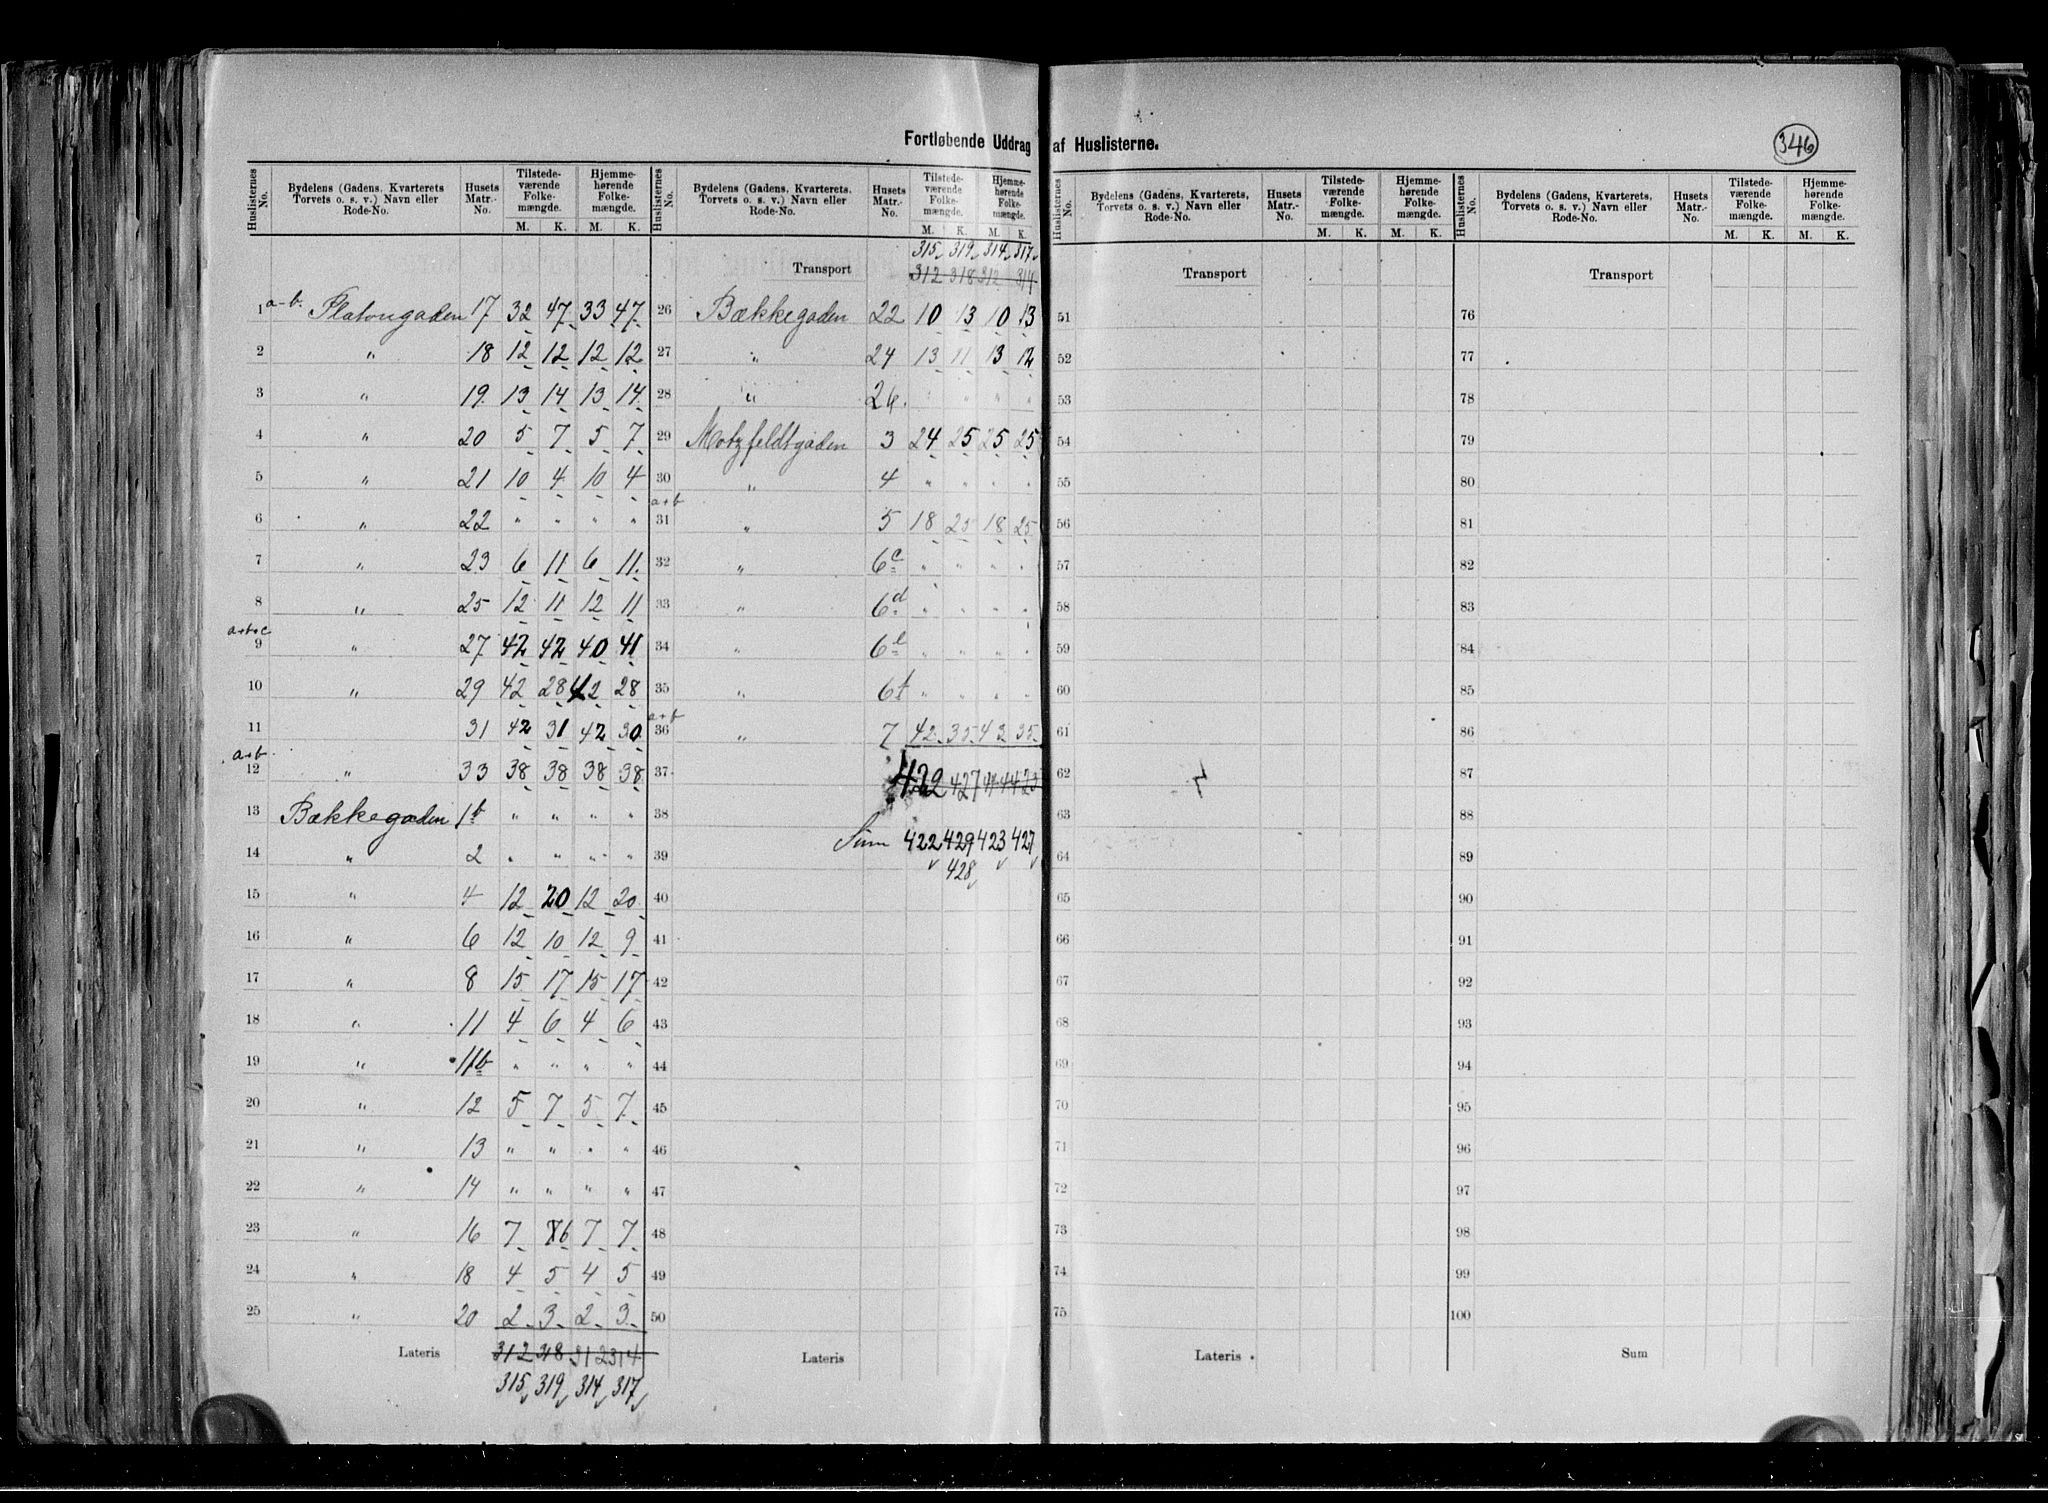 Fortløbende Uddrag af Huslisterne.
346
Huslisternes No. Bydelens (Gadens, Kvarterets Torvets o. s. v.) Navn eller Rode-No. Husets Matr.-No. Tilstedeværende Folkemængde. M. K. Hjemmehørende Folkemængde. M. K.
1 a-b. Flatougaden 17 32 47 33 47
2 " 18 12 12 12 12
3 " 19 13 14 13 14
4 " 20 5 7 5 7
5 " 21 10 4 10 4
6 " 22 " " " "
7 " 23 6 11 6 11
8 " 25 12 11 12 11
a+b+c
9 " 27 42 42 40 41
10 " 29 42 28 42 28
11 31 42 31 42 30
a+b
12 " 33 38 38 38 38
13 Bækkegaden 1b " " " "
14 " 2 " " " "
15 " 4 12 20 12 20
16 " 6 12 10 12 9
17 " 8 15 17 15 17
18 " 11 4 6 4 6
19 " 11b " " " "
20 " 12 5 7 5 7
21 " 13 " " " "
22 " 14 " " " "
23 " 16 7 6 7 7
24 " 18 4 5 4 5
25 " 20 2 3 2 3
Lateris 312 318 312 314
315 319 314 317
Huslisternes No. Bydelens (Gadens, Kvarterets, Torvets o. s. v.) Navn eller Rode-No. Husets Matr.-No. Tilstedeværende Folkemængde. M. K. Hjemmehørende Folkemængde. M. K.
315 319 314 317
Transport 312 318 312 314
26 Bækkegaden 22 10 13 10 13
27 " 24 13 11 13 12
28 " 26 " " " "
29 Motzfeldtgaden 3 24 25 25 25
30 " 4 " " " "
a+b
31 " 5 18 25 18 25
32 " 6c " " " "
33 " 6d " " " "
34 " 6e " " " "
35 " 6f " " " "
a+b
36 " 7 42 35 43 35
37 422 427
38
Sum 422 429 423 427
39
428
40
41
42
43
44
45
46
47
48
49
50
Lateris
Huslisternes No. Bydelens (Gadens, Kvarterets, Torvets o. s. v.) Navn eller Rode-No. Husets Matr.-No. Tilstedeværende Folkemængde. M. K. Hjemmehørende Folkemængde. M. K.
Transport
51
52
53
54
55
56
57
58
59
60
61
62
63
64
65
66
67
68
69
70
71
72
73
74
75
Lateris
Huslisternes No. Bydelens (Gadens, Kvarterets, Torvets o. s. v.) Navn eller Rode-No. Husets Matr.-No. Tilstedeværende Folkemængde. M. K. Hjemmehørende Folkemængde. M. K.
Transport
76
77
78
79
80
81
82
83
84
85
86
87
88
89
90
91
92
93
94
95
96
97
98
99
100
Sum